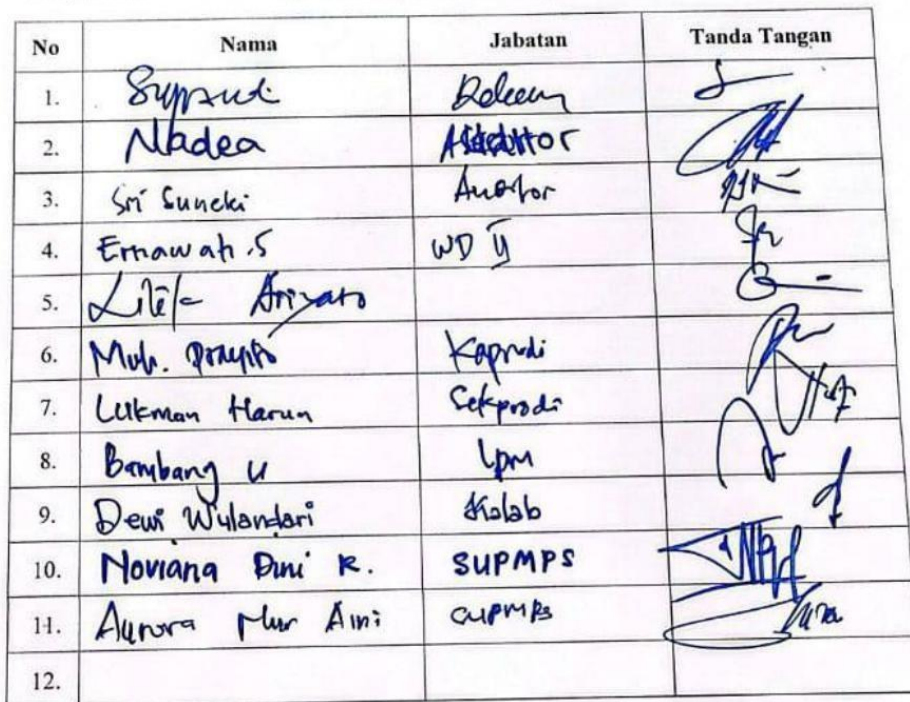 No Nama Jabatan Tanda Tangan
1. Supandi Dekan
2. Nadea Auditor
3. Sri Suneki Auditor
4. Ernawati .S WD II
5. Lilik Ariyanto
6. Muh. Prayito Kaprodi
7. Lukman Harun Sekprodi
8. Bambang U lpm
9. Dewi Wulandari Kalab
10. Noviana Dini R. SUPMPS
11. Aurora Nur Aini SUPMPS
12.